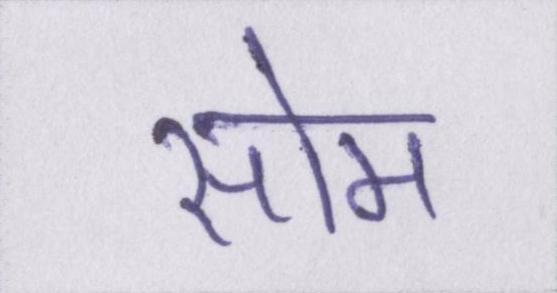 सोम